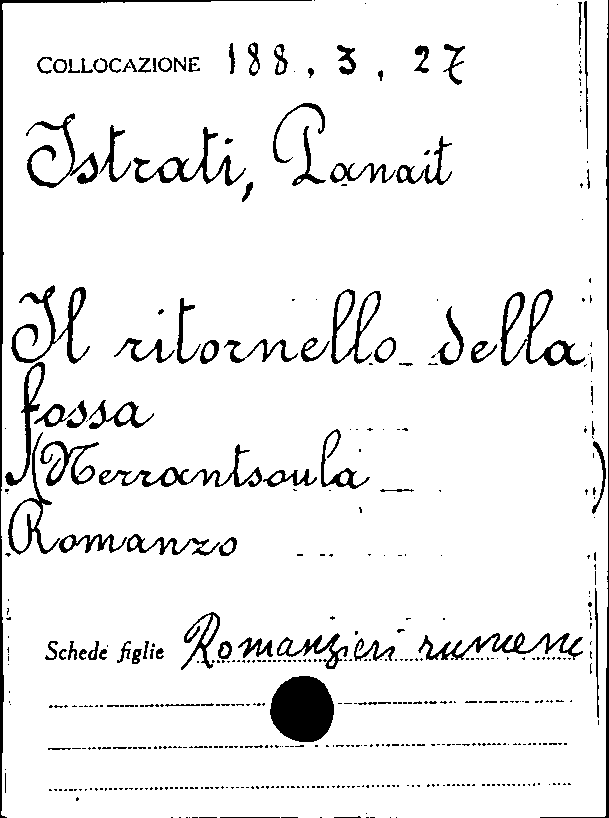 COLLOCAZIONE 188.3.27
Istrati, Panait
Il ritornello della
fossa
(Nerrantsoula )
Romanzo
Schede figlie Romanzieri rumeni